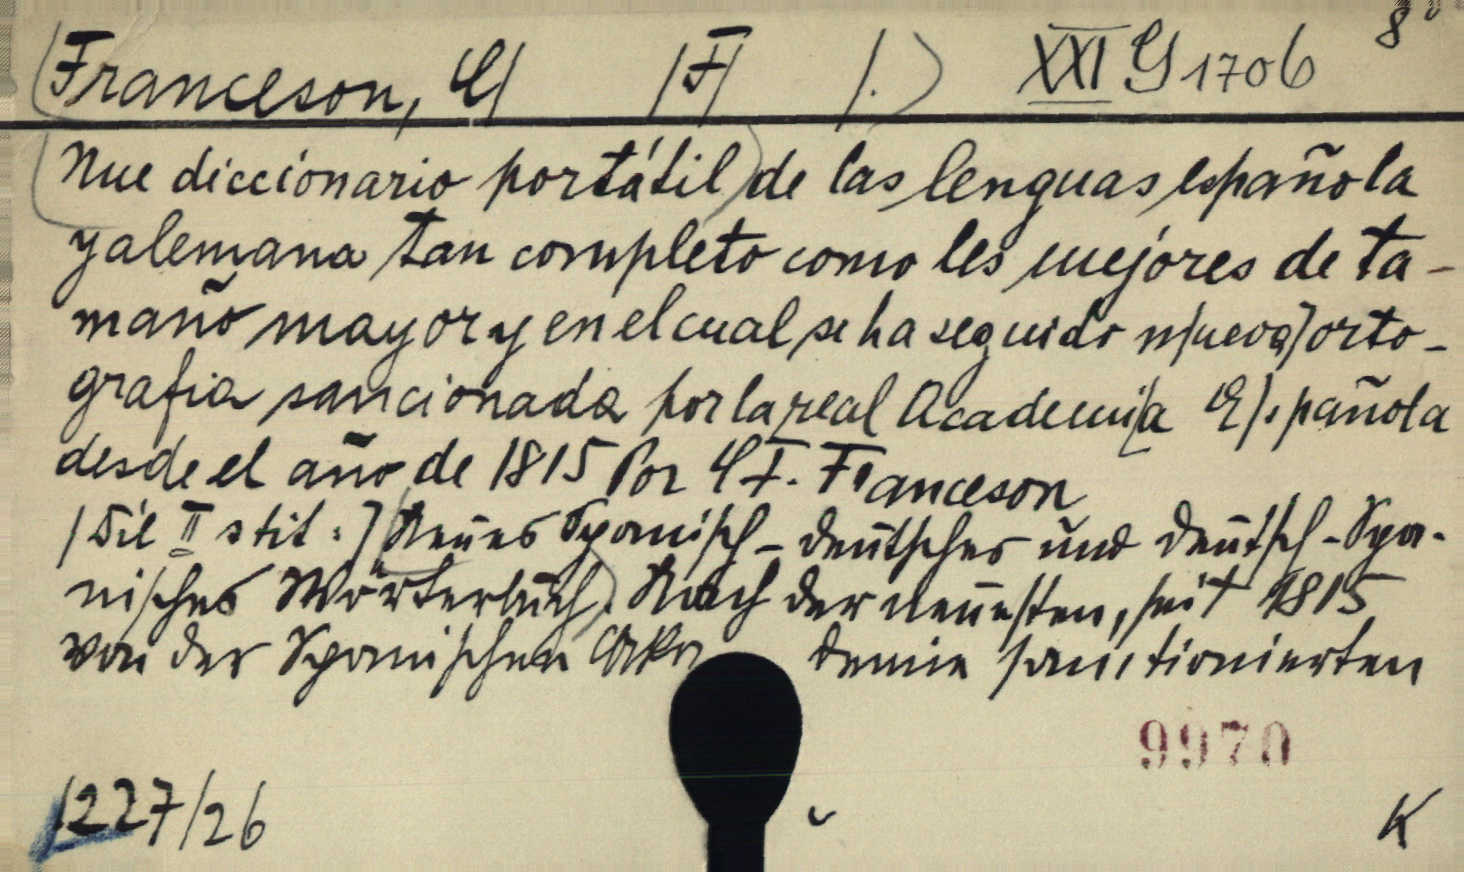 Franceson, C| |F| |.) XXI G 1706 8°
Nue diccionario portátil de las lenguas española
y alemana tan completo como les mejores de ta-
maño mayor y en el cual se ha seguido n[ueva] orto-
grafia sancionada por la real Academi[a E]spañola
desde el año de 1815 Por C F. Franceson
[Dil II stit:] Neues Spanisch-deutsches und deutsch-Spa-
nisches Wörterbuch. Nach der neuesten, seit 1815
von der Spanischen Aka demie sanctionierten
9970
1227/26 K